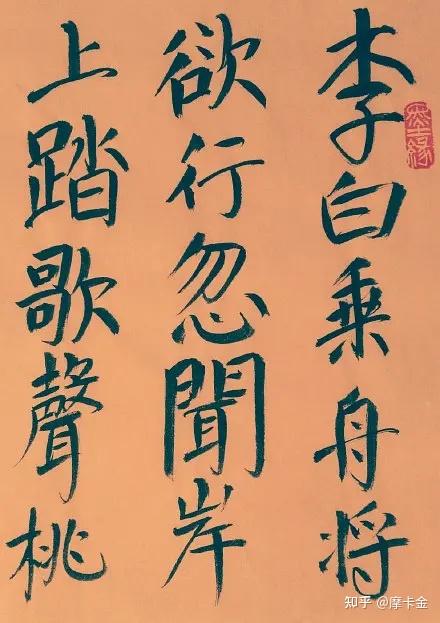 李白乘舟将
欲行忽聞岸
上踏歌聲桃
知乎 @摩卡金